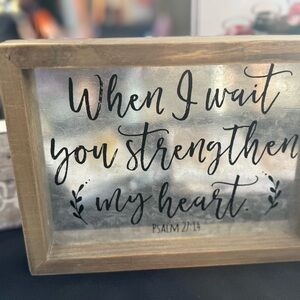 When I wait
you strengthen
my heart.
PSALM 27:14